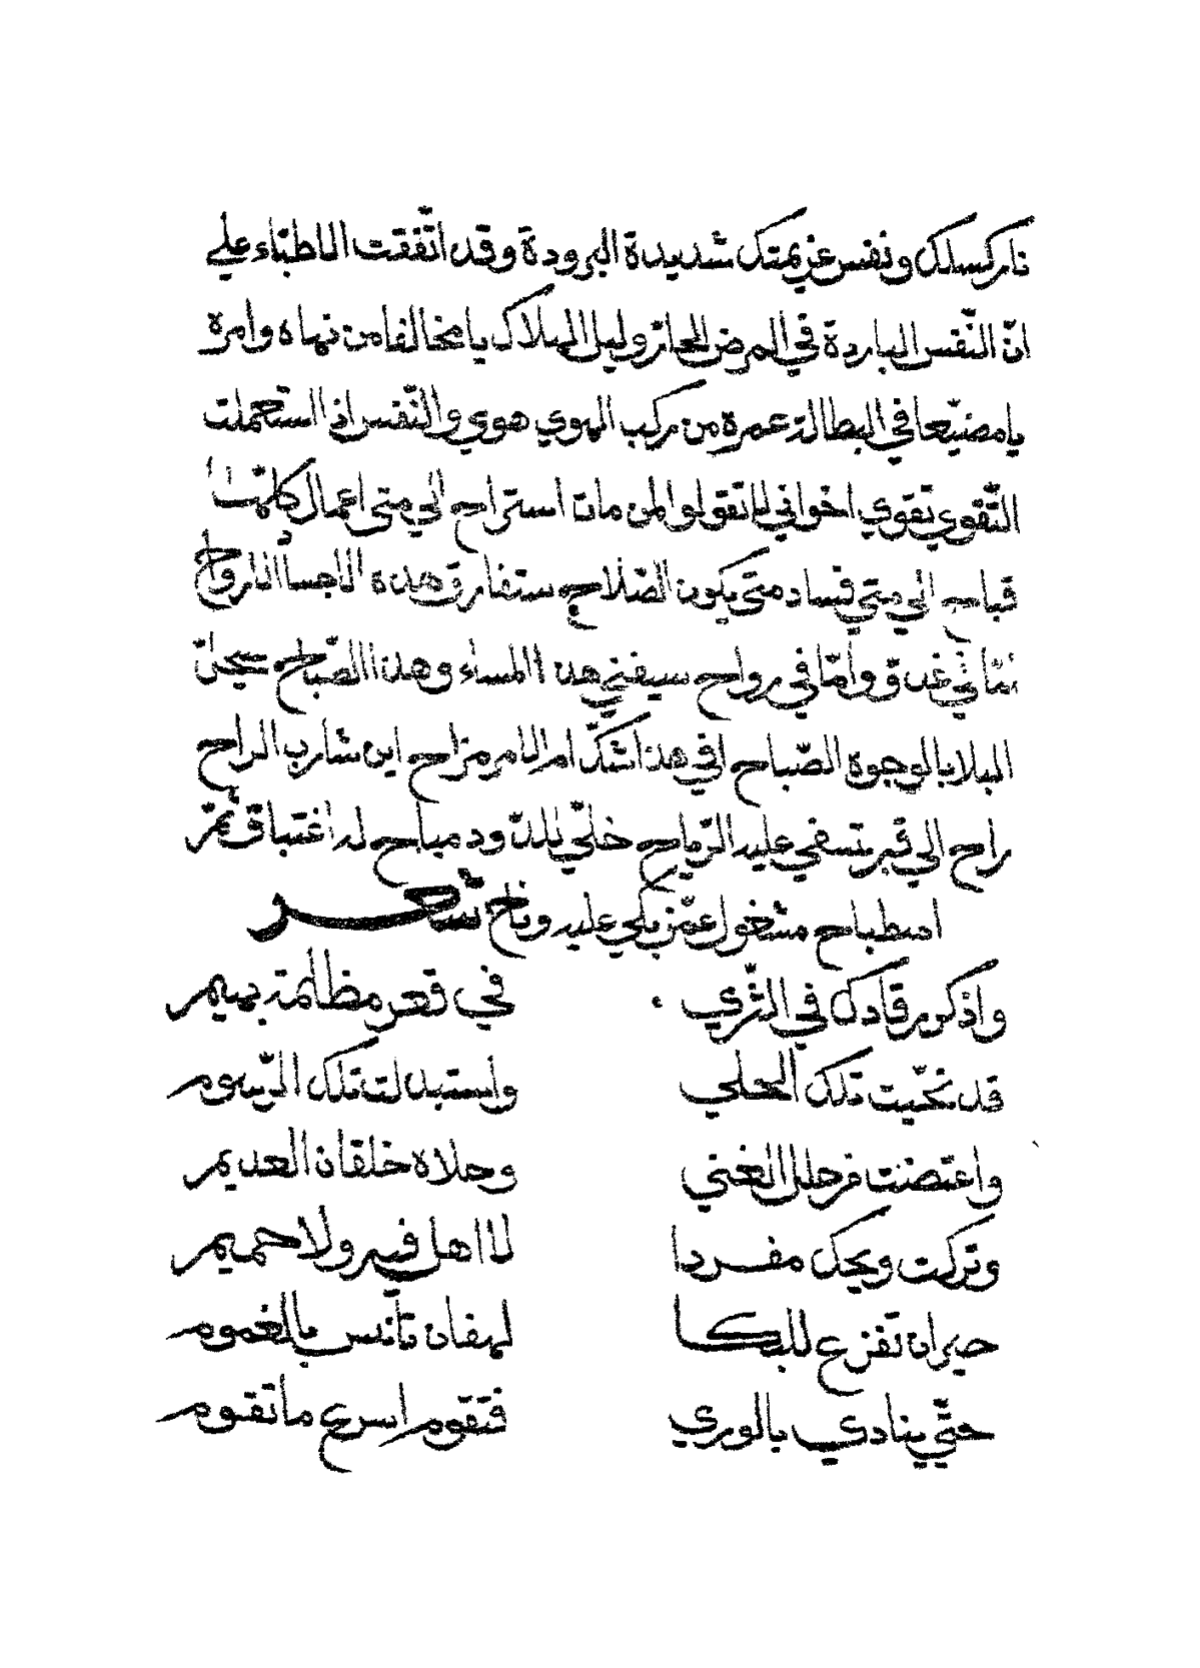 نار كسلك ونفس عزيمتك شديدة البرودة وقد اتّفقت الاطبّاء علي
انّ النّفس الباردة في المرض الحادّ وليل الهلاك يا مخالفا من نهاه وامره
يا مضيّعا في البطالة عمره من مركب الهوي هوي والنّفس اذا استحملت
التّقوي تقوي اخواني لا تقولوا لمن مات استراح الي متي اعمال كلّها
قباح الي متي فساد متي يكون الصّلاح ستفارق هذه الاجساد الارواح
امّا في غدوّ وامّا في رواح سيفني هذا المساء وهذا الصّباح سيحلّ
البلا بالوجوه الصّباح افي هذا شكّ ام الامر مزاح اين شارب الراح
راح الي قبر تسفي عليه الرّياح خلّي للدّود مباح له اغتباق ثمّ
اصطباح مشغول عمّن بكي عليه وناح شعر
واذكر رقادك في الثّري في قعر مظلمة بهيم
قد نحّيت تلك الحلي واستبدلت تلك الرّسوم
واعتضت من حلل الغني وحلاه خلقان العديم
وتركت ويحك مفردا لا اهل فيه ولا حميم
حيران تفزع للبكا لهفان تأنس بالغموم
حتّي ينادي بالوري فتقوم اسرع ما تقوم